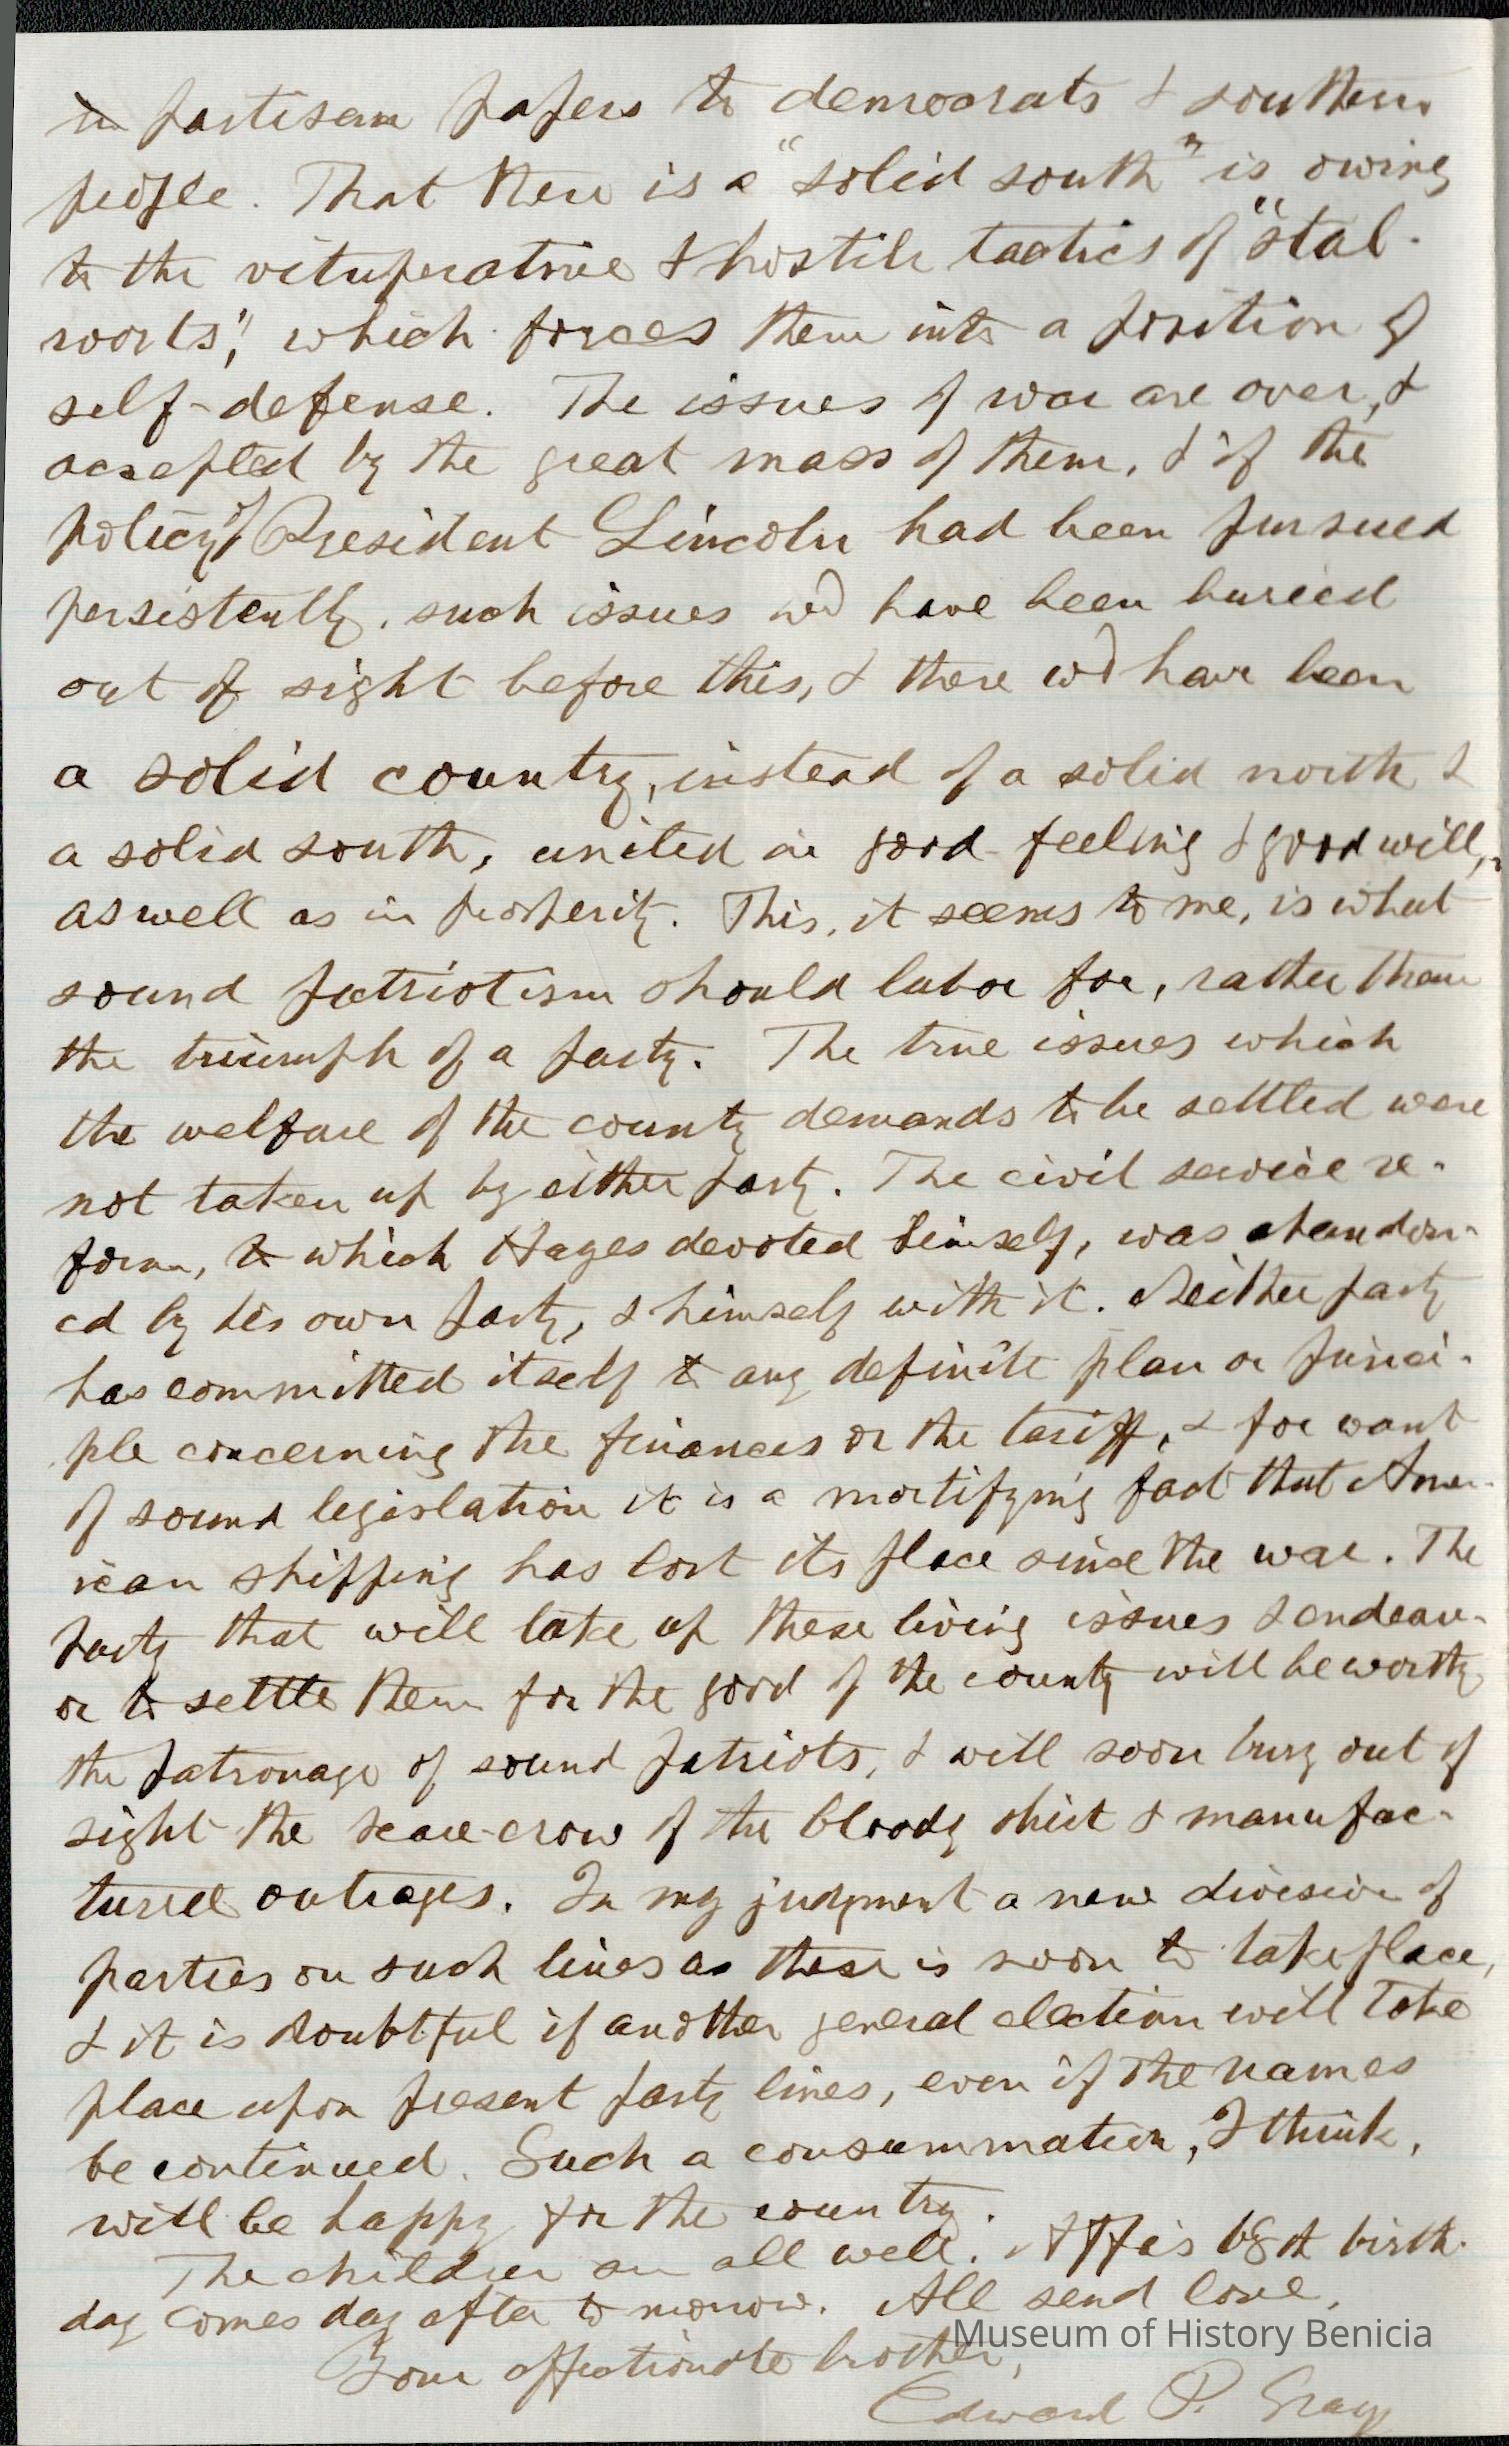 in partisan papers to democrats & southern
people. That there is a "solid south" is owing
to the vituperative & hostile tactics of "stal-
warts", which forces them into a position of
self-defense. The issues of war are over, &
accepted by the great mass of them, & if the
policy of President Lincoln had been pursued
persistently, such issues wd have been buried
out of sight before this, & there wd have been
a solid country, instead of a solid north &
a solid south, united in good feeling & good will,
as well as in prosperity. This, it seems to me, is what
sound patriotism should labor for, rather than
the triumph of a party. The true issues which
the welfare of the country demands to be settled were
not taken up by either party. The civil service re-
form, to which Hayes devoted himself, was abandon-
ed by his own party, & himself with it. Neither party
has committed itself to any definite plan or princi-
ple concerning the finances or the tariff, & for want
of sound legislation it is a mortifying fact that Amer-
ican shipping has lost its place since the war. The
party that will take up these living issues & endeav-
or to settle them for the good of the country will be worthy
the patronage of sound patriots, & will soon bury out of
sight the scare-crow of the bloody shirt & manufac-
tured outrages. In my judgment a new division of
parties on such lines as these is soon to take place,
& it is doubtful if another general election will take
place upon present party lines, even if the names
be continued. Such a consummation, I think,
will be happy for the country.
The children are all well. 68th birth-
day comes day after tomorrow. All send love,
Your affectionate brother,
Edward P. Gray
Museum of History Benicia